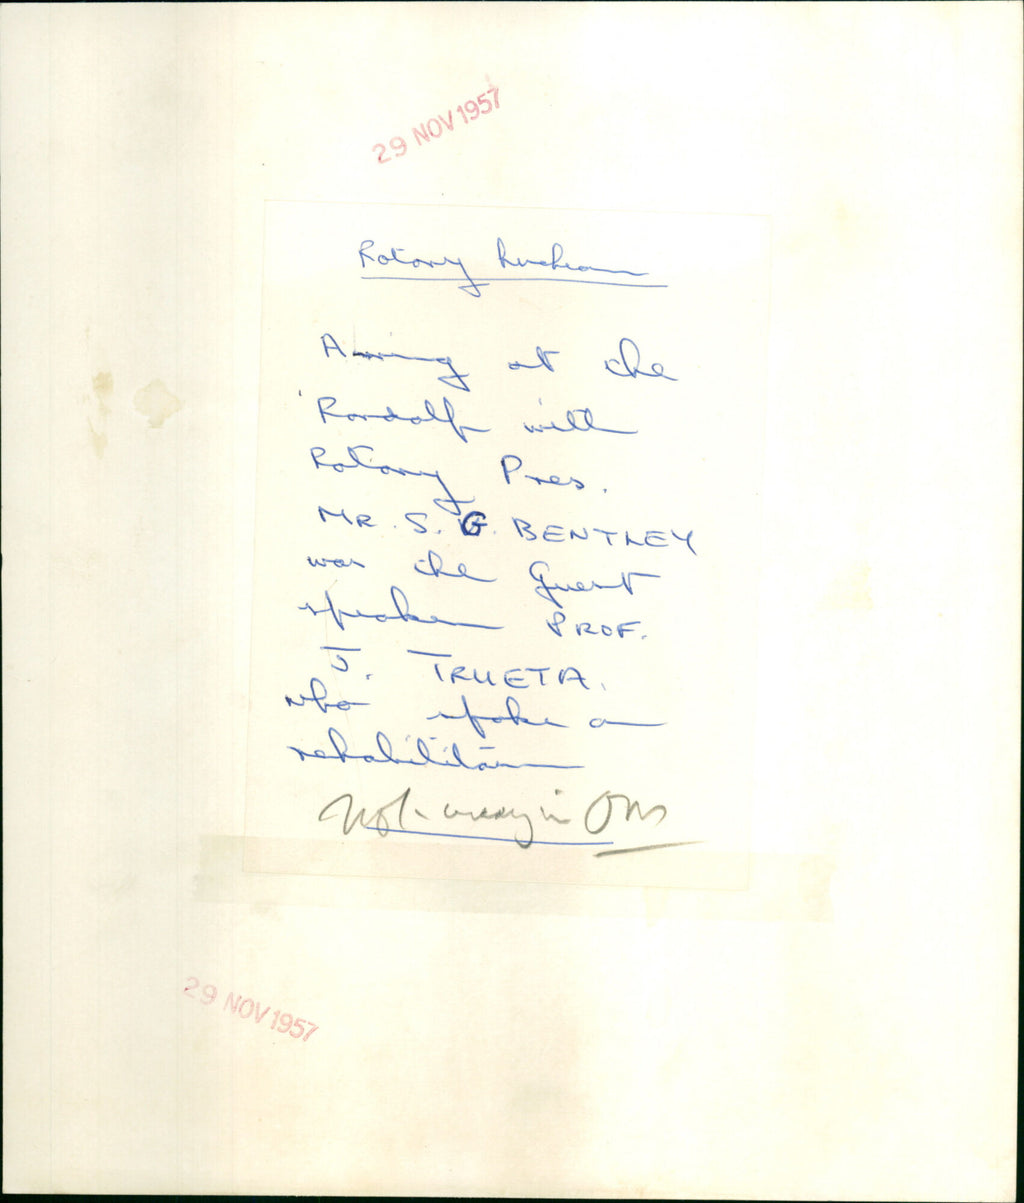 29 NOV 1957
Rotary Luncheon
Arriving at the
Randolf with
Rotary Pres.
MR. S. G. BENTLEY
was the Guest
speaker PROF.
J. TRUETA.
who spoke on
rehabilitation
Not in
29 NOV 1957